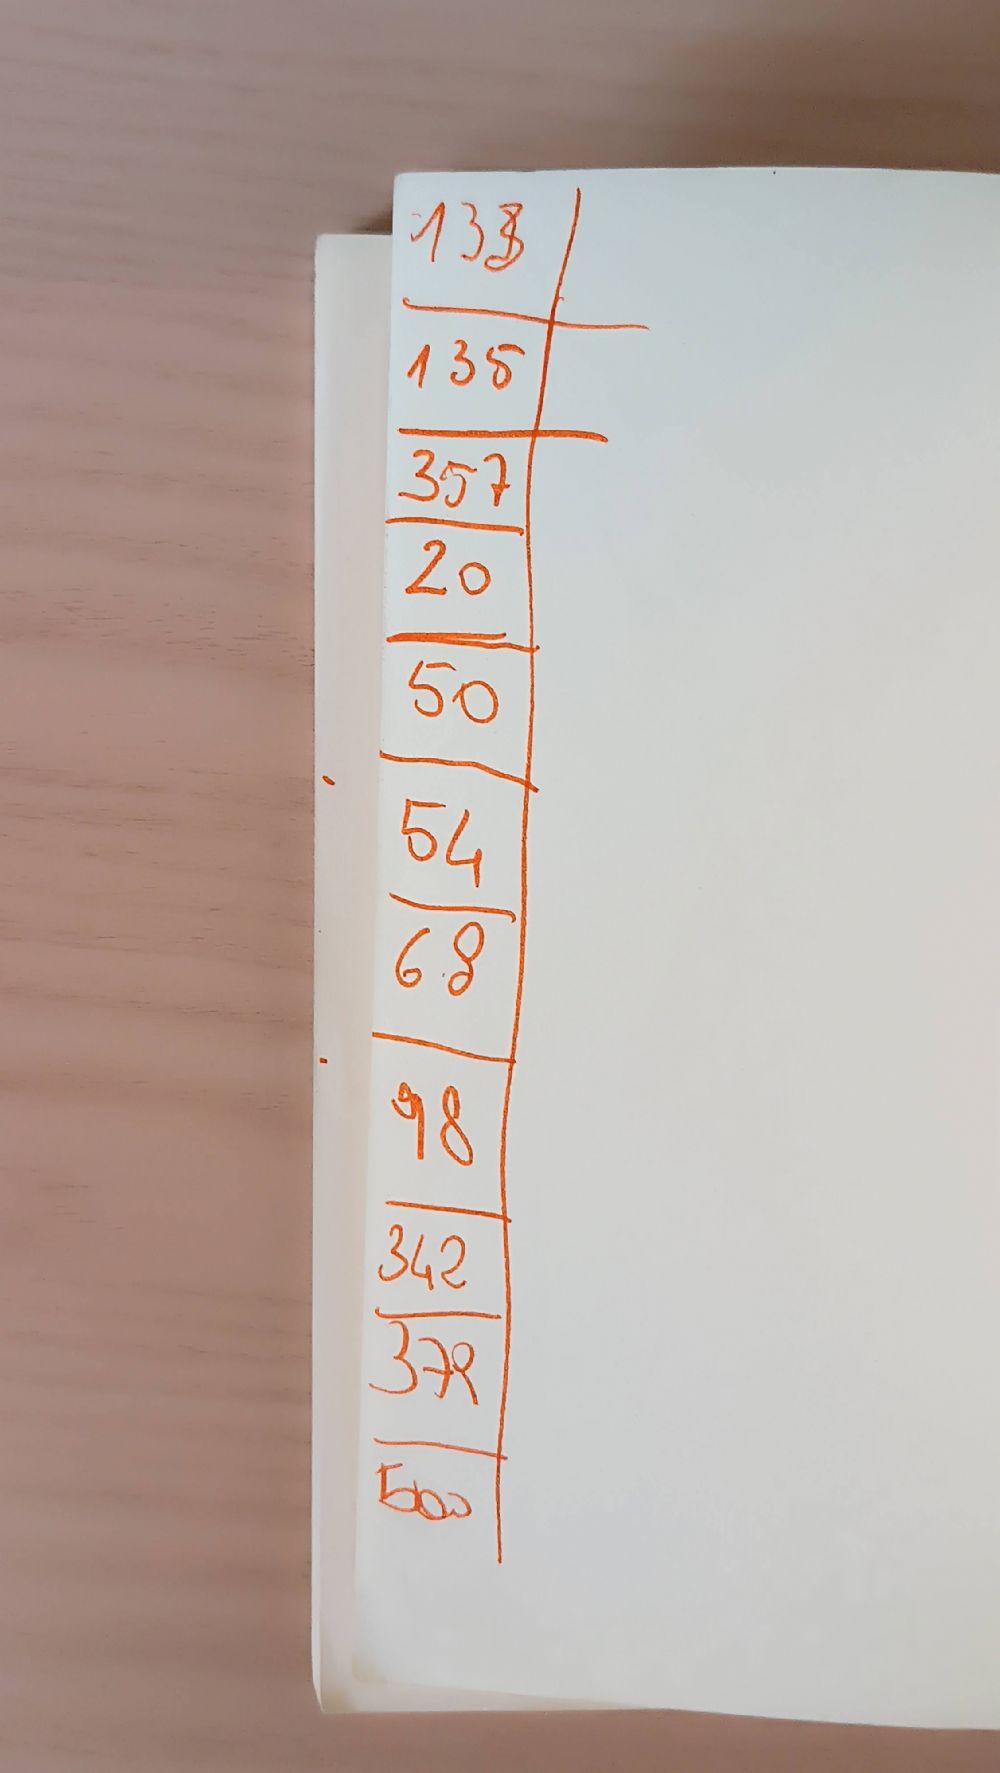 133
135
357
20
50
54
68
98
342
379
500